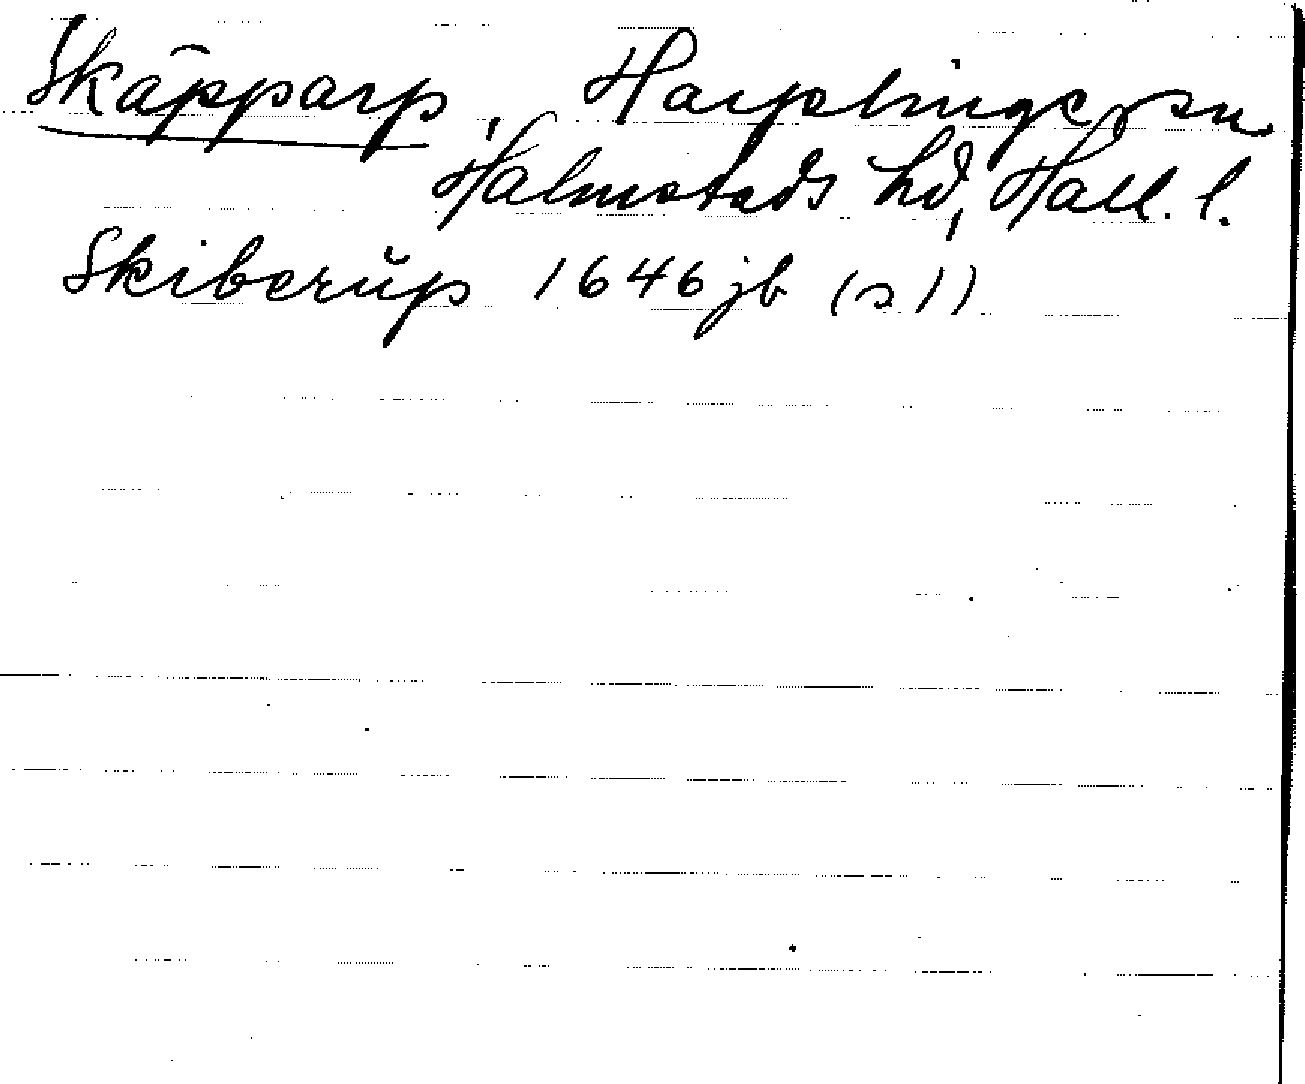 Skäpparp, Harplinge sn
Halmstads hd, Hall. l.
Skiberŭp 1646 jb (s 1)